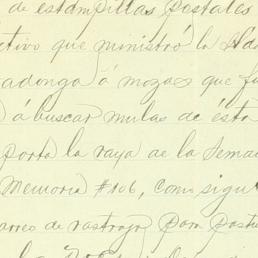 de estampillas postales
ctivo que ministró la Hda
adonga á mozos que fu
á buscar mulas de ésta
porta la raya de la Sema
Memoria #106, como sigu
arreo de rastrojo para pastu